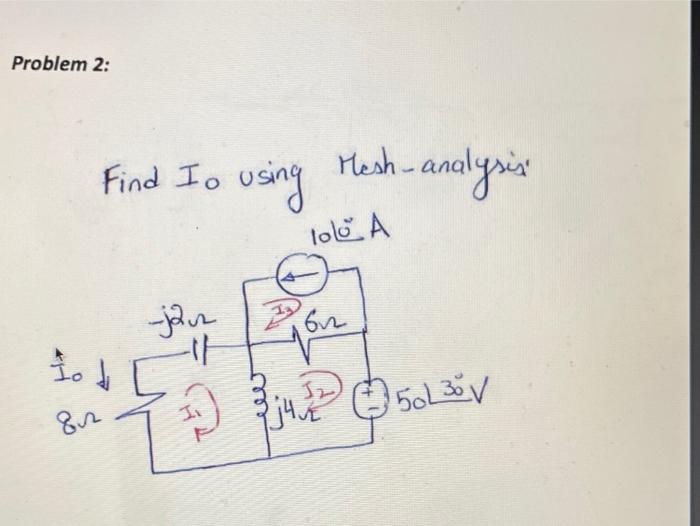 Problem 2:
Find Io using Mesh-analysis
10∠0° A
I3
-j2Ω
6Ω
Io
I1
I2
8Ω
j4Ω
+
-
50∠30° V